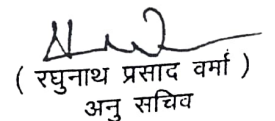 ( रघुनाथ प्रसाद वर्मा )
अनु सचिव